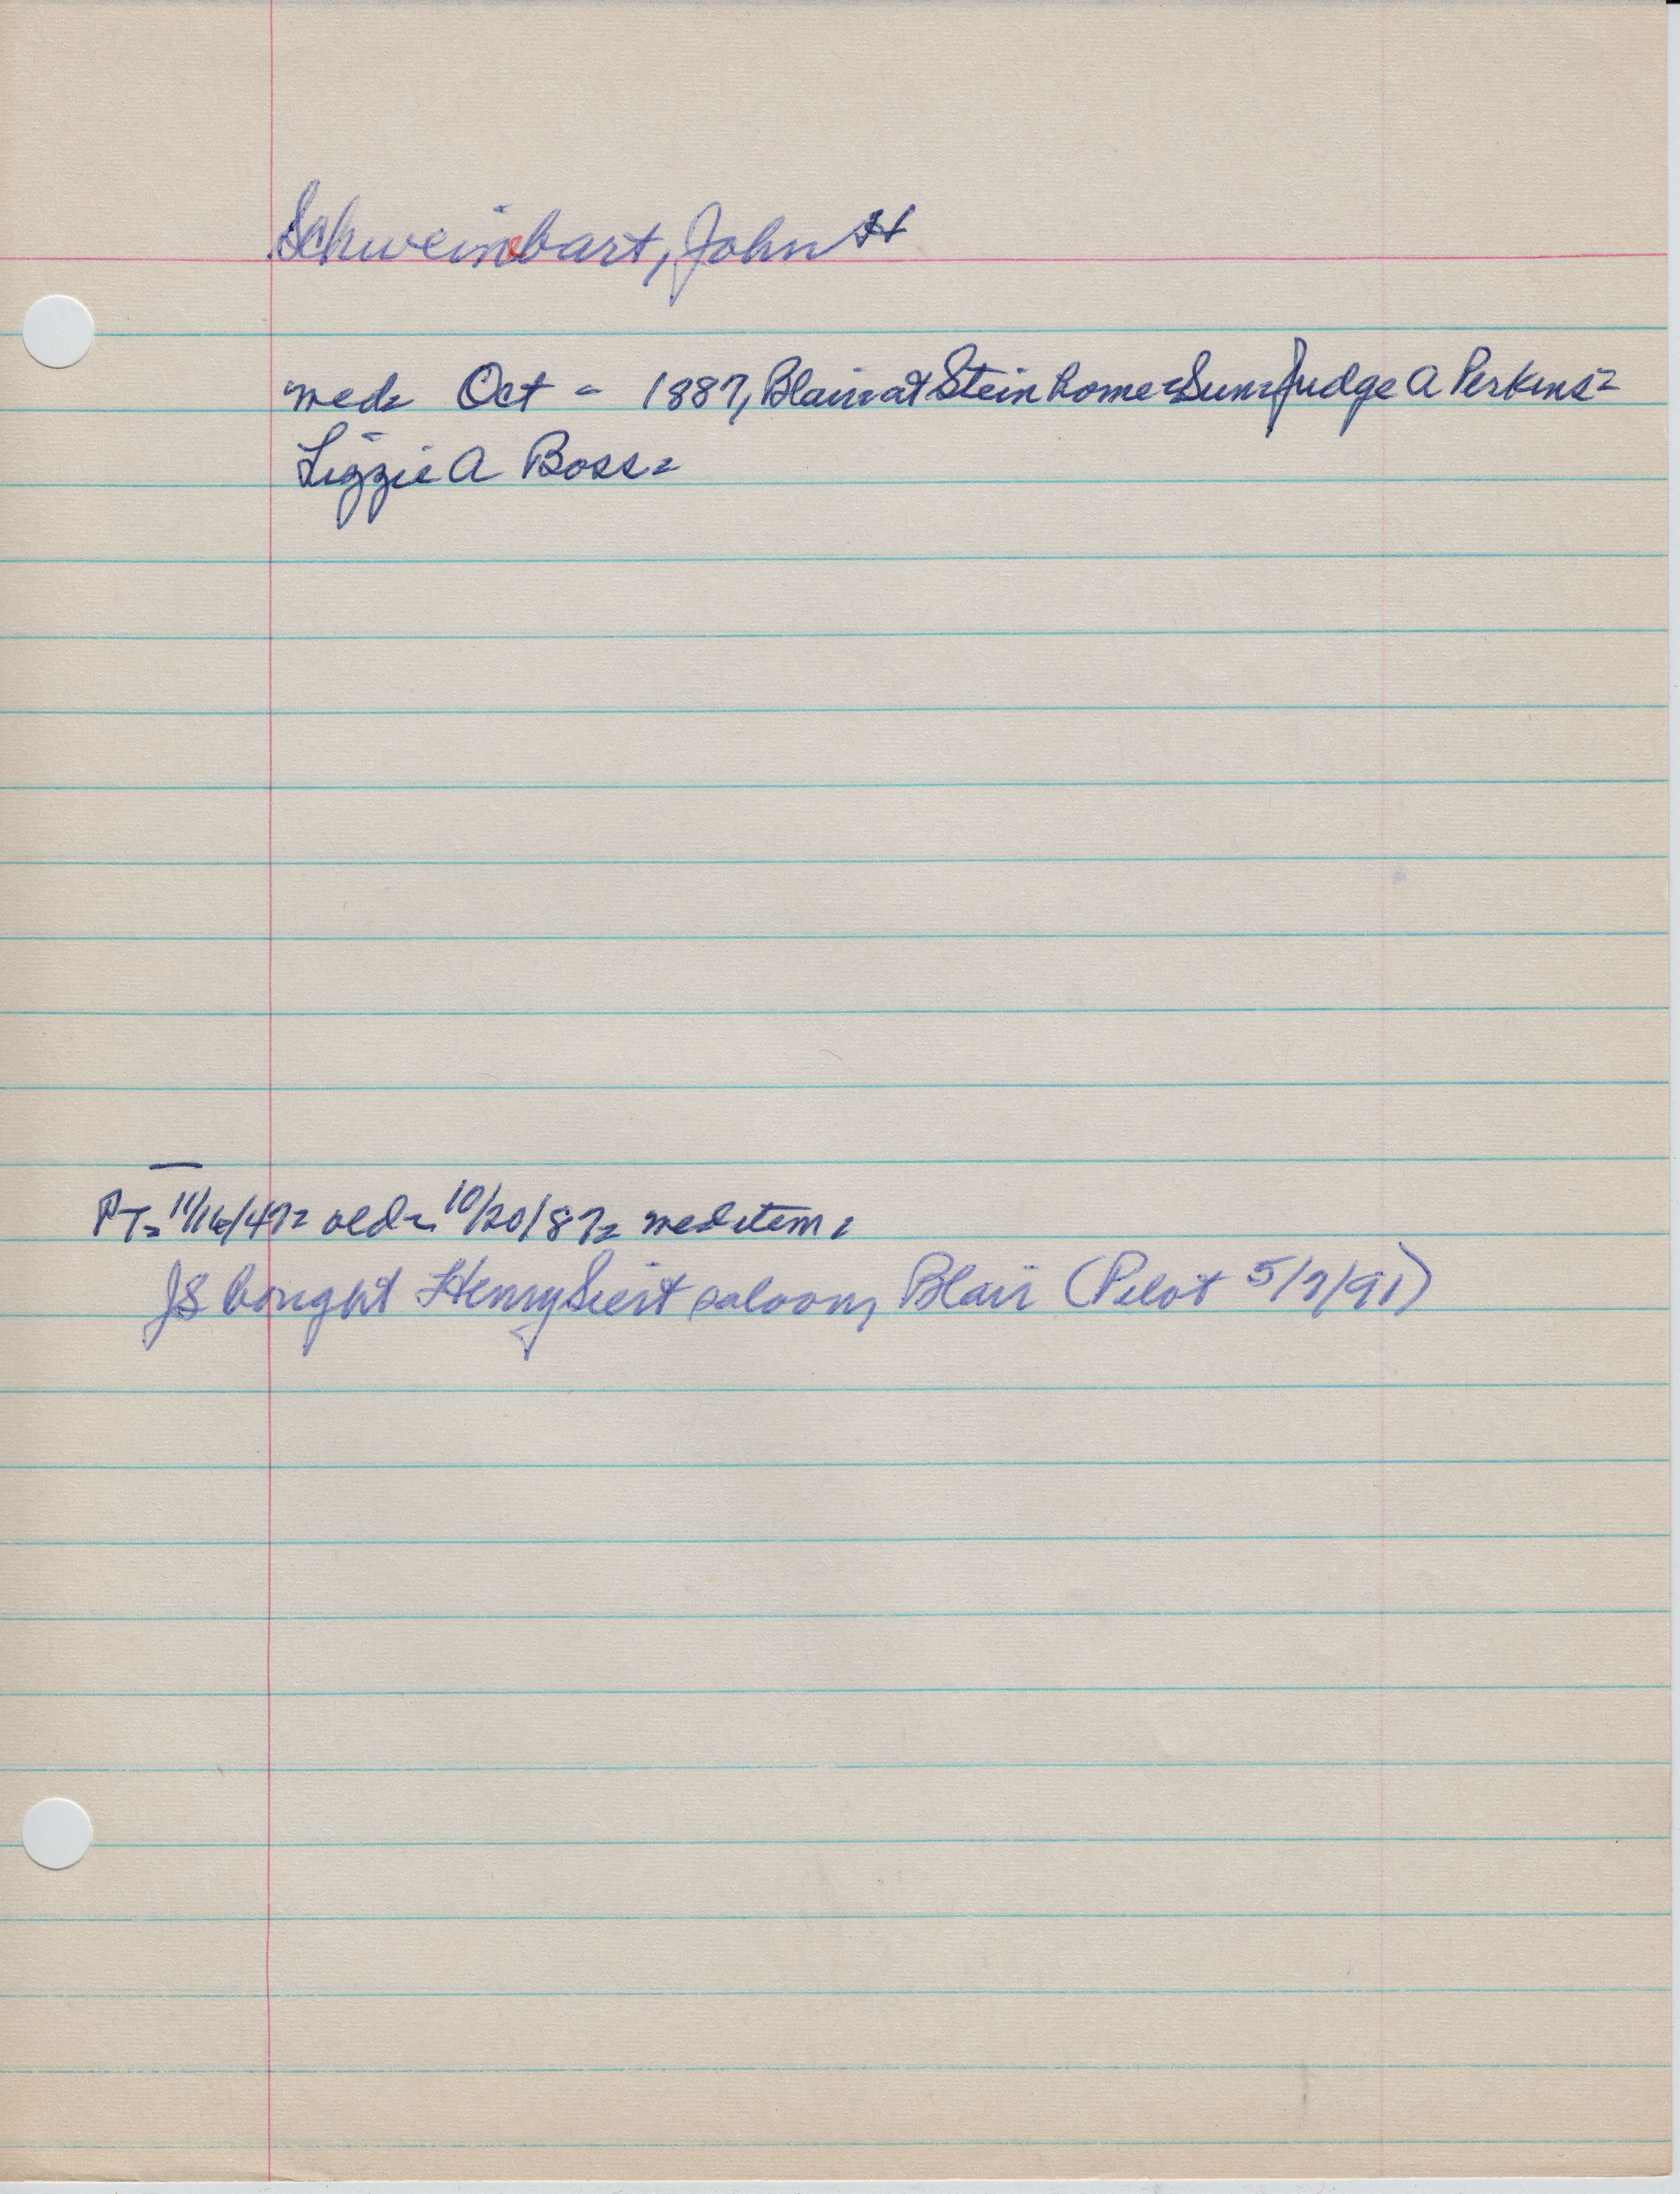 Schweinebart, John H
wed- Oct - 1887, Blair-at Stein home-Sun-Judge A Perkins-
Lizzie A Boss-
PT- 11/16/47- old- 10/20/87- wed item-
JS bought Henry Siert saloon, Blair (Pilot 5/7/91)